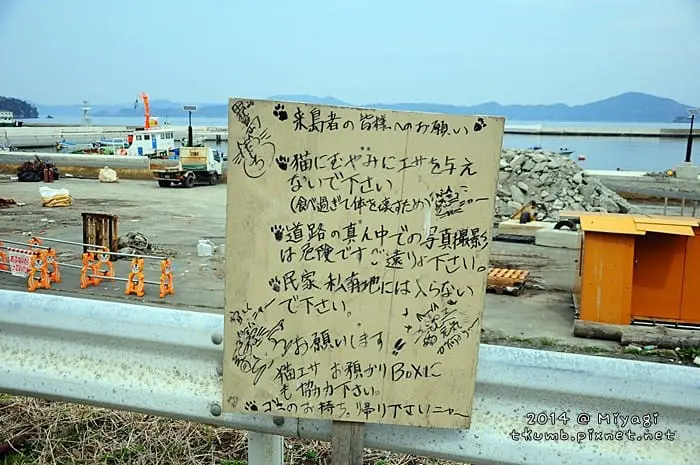 来島者の皆様へのお願い
猫にむやみにエサを与え
ないで下さい
(食べ過ぎて体を壊すため)
道路の真ん中での写真撮影
は危険ですご遠りょ下さい。
民家・私有地には入らない
で下さい。
お願いします
猫エサお預かりBOXに
も協力下さい。
ゴミのお持ち帰り下さいニャー
2014 @ Miyagi
tkumb.pixnet.net